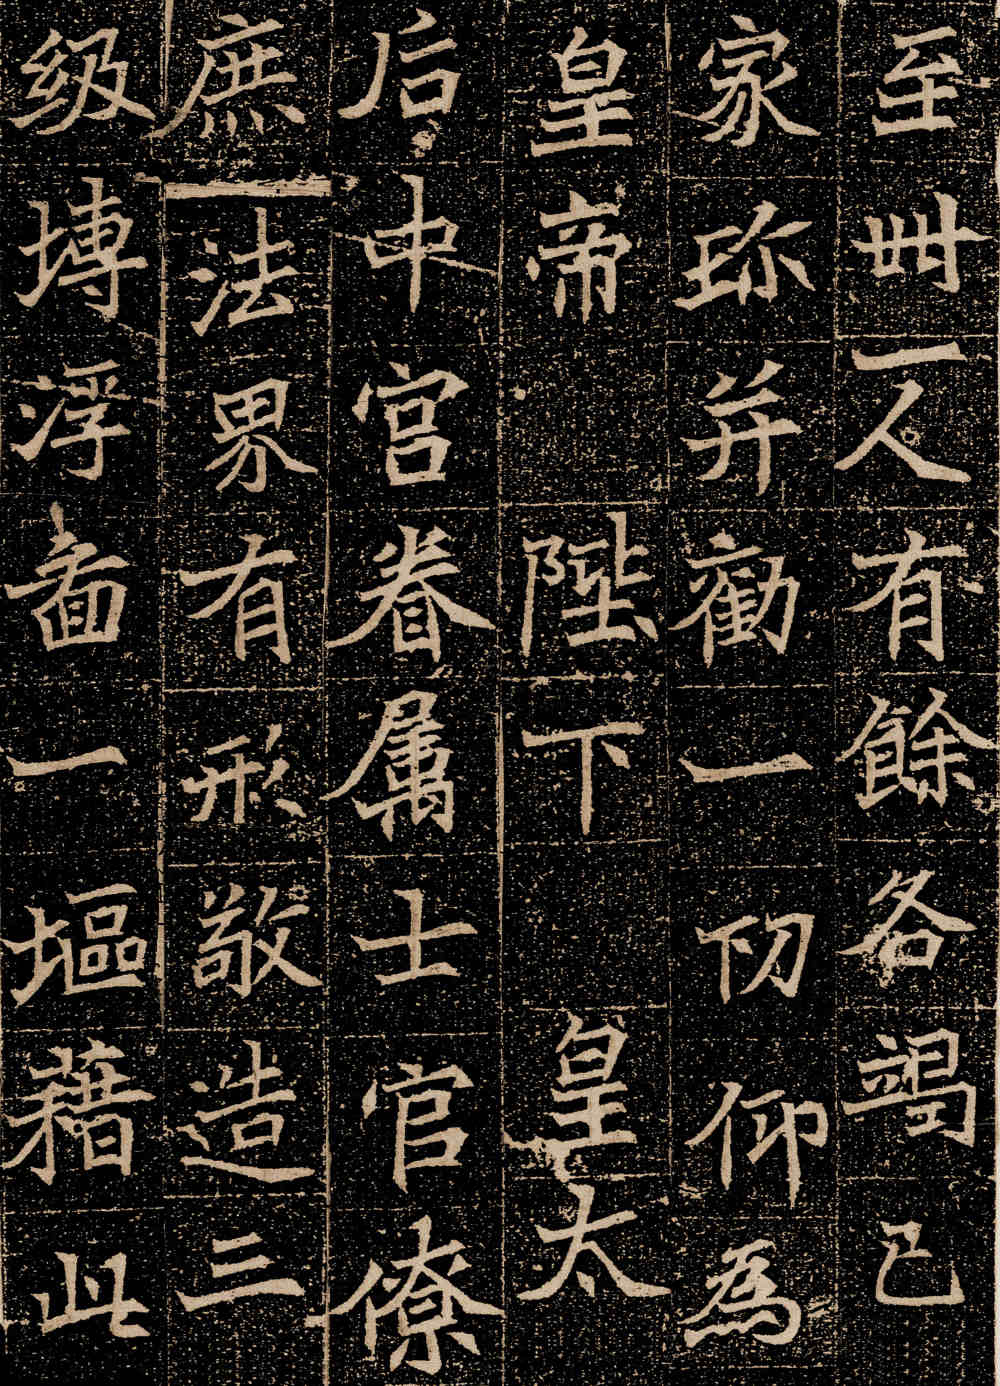 至卌一人有餘各竭己
家珎并勸一切仰為
皇帝陛下皇太
后中宮眷属士官僚
庶法界有形敬造三
级塼浮啚一塸藉此